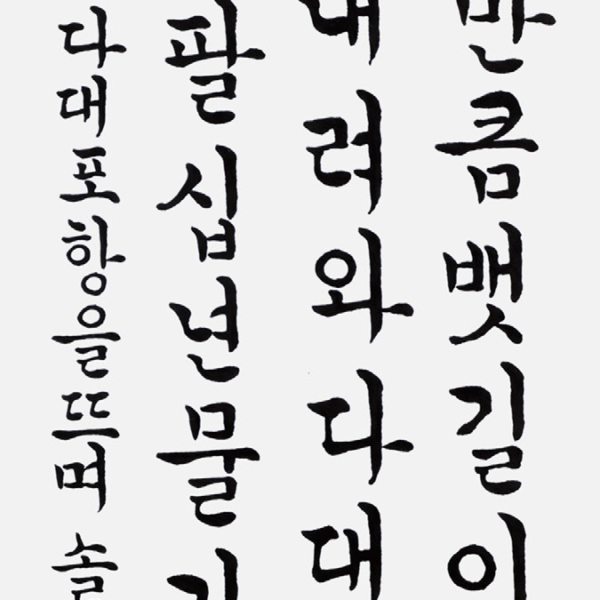 만큼뱃길이
내려와다대
팔십년물
다대포항을뜨며 솔